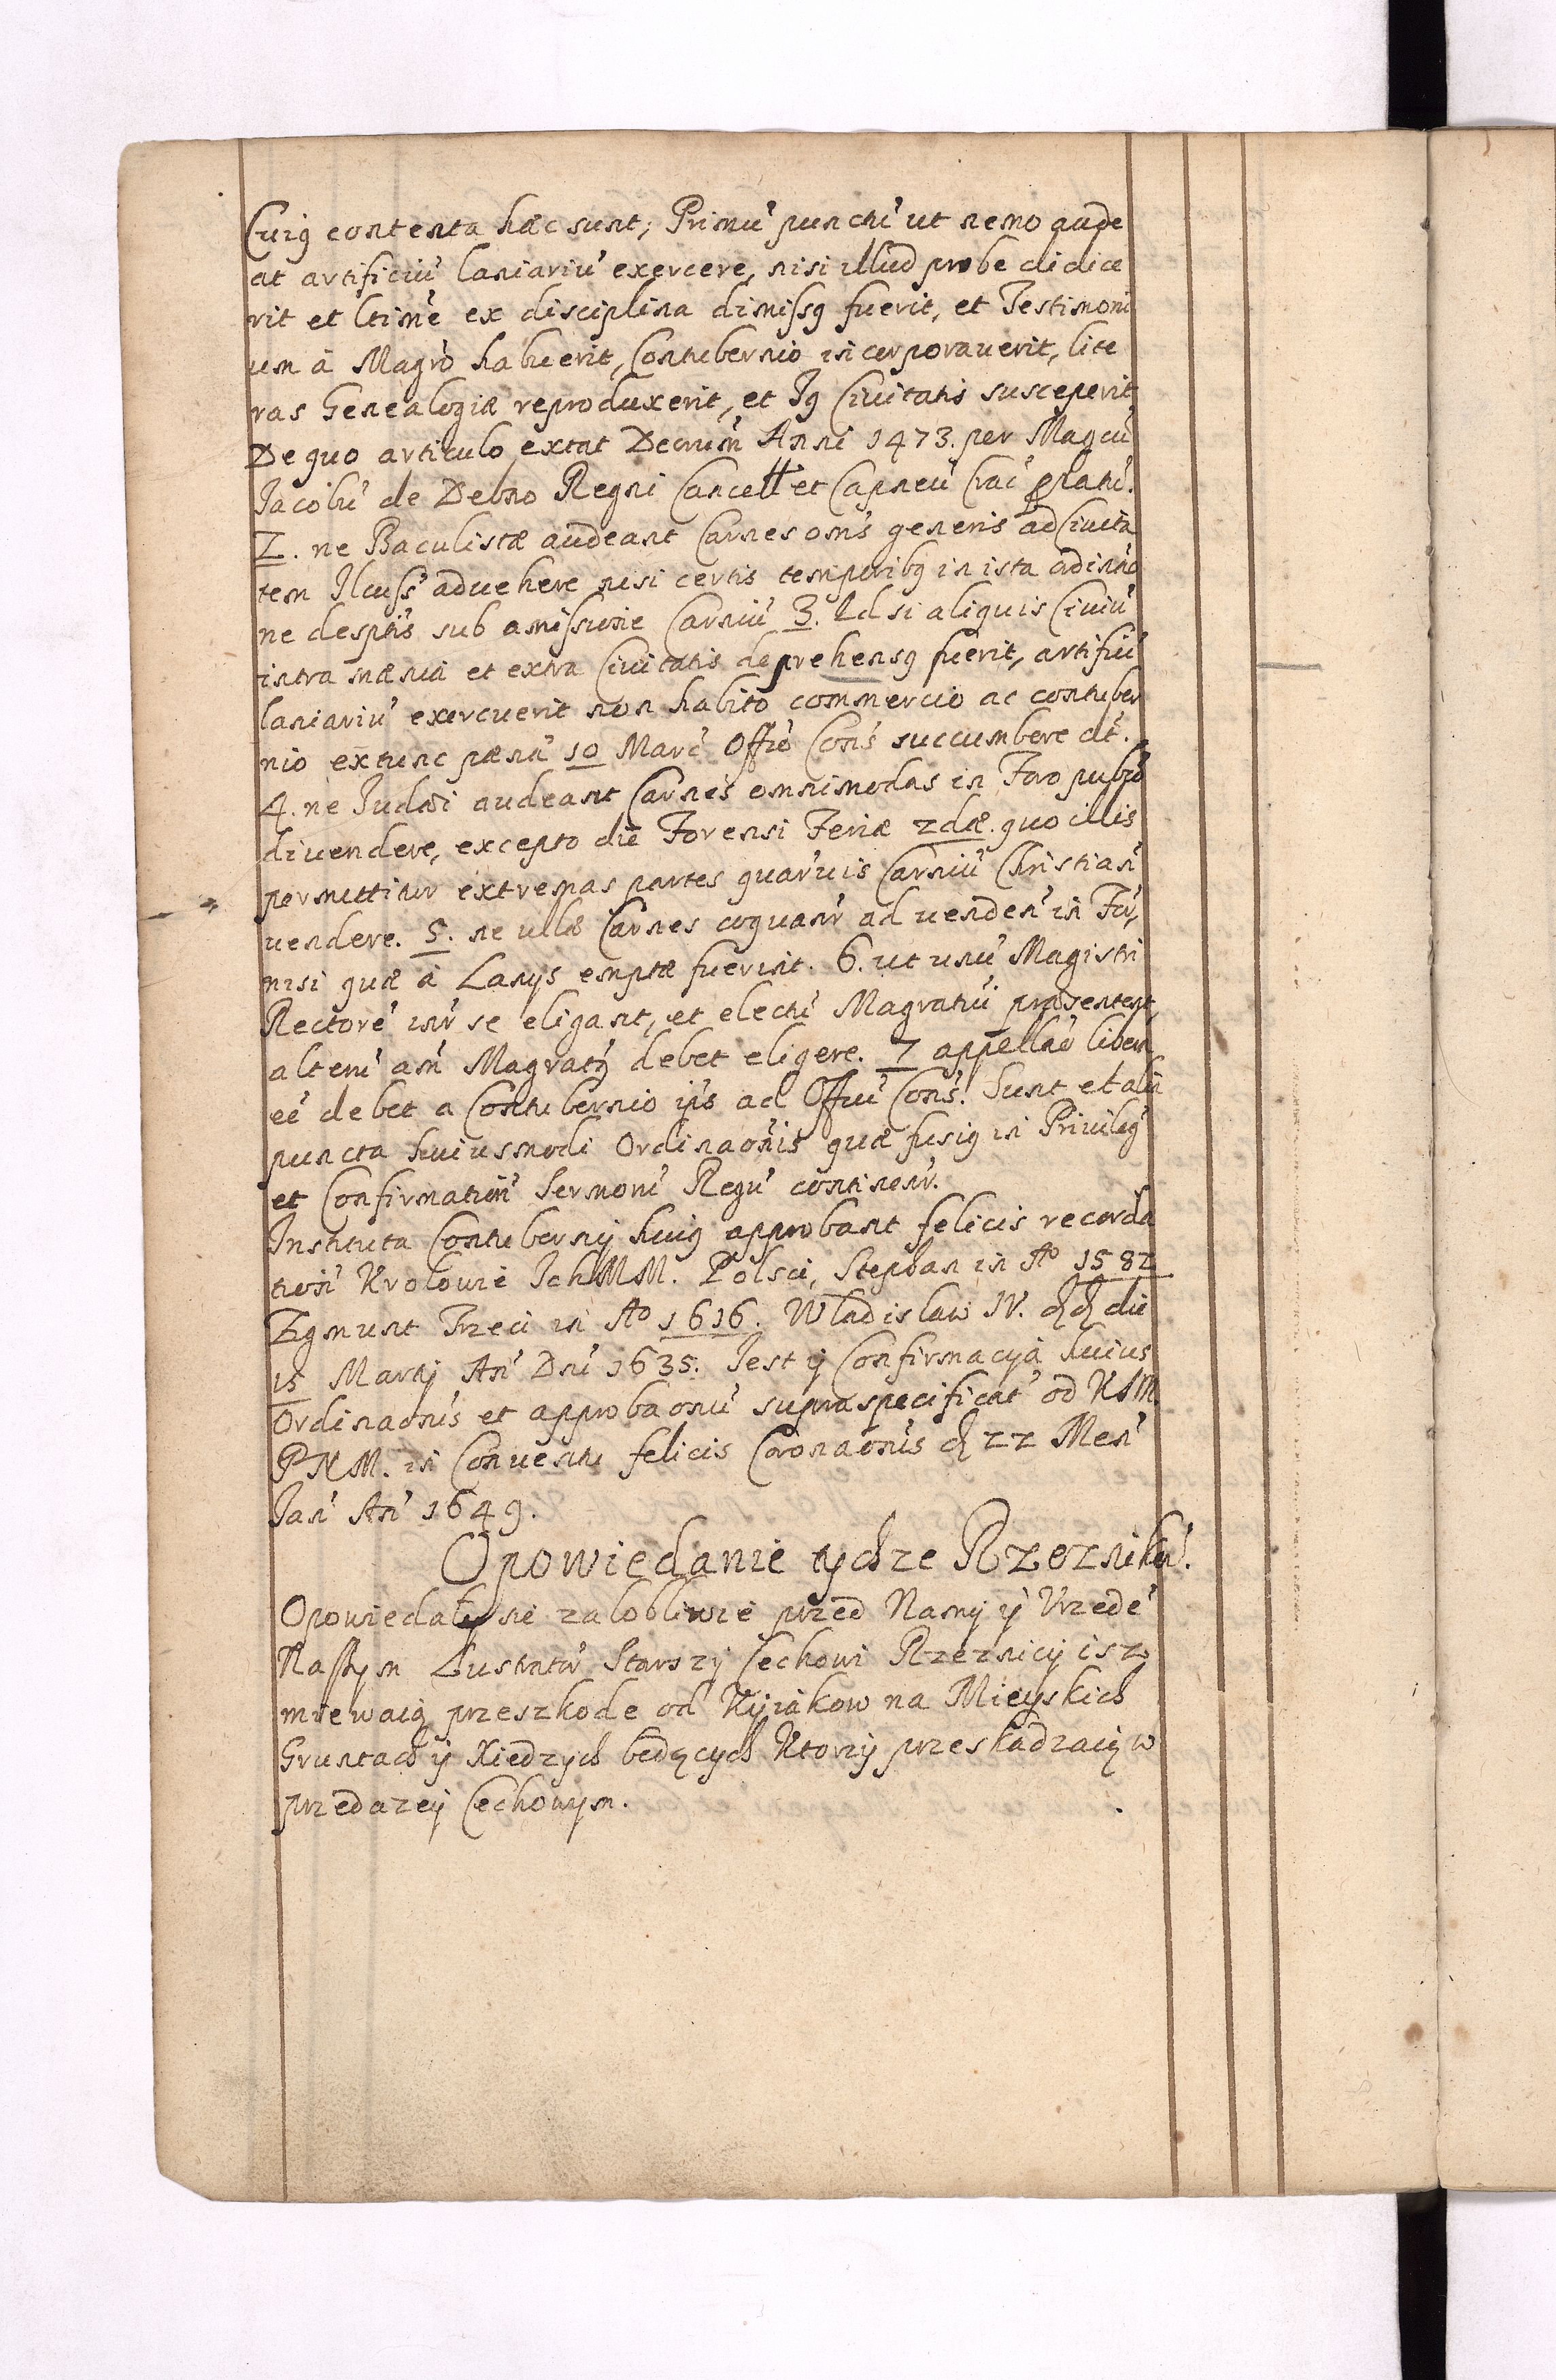 Cuiq contenta hæc sunt; Primu' punctu' ut nemo aude
at artificiu' laniariu' exercere, nisi illud probe didice
rit et ltime ex disciplina dimissq fuerit, et Testimoni
um à Magro habuerit, Contubernio incorporauerit, lite
ras Genealogiæ reproduxerit, et Iq Ciuitatis susceperit
De quo articulo extat Decrum Anni 1473. per Magcu'
Jacobu' de Debno Regni Cancell et Capneu' Crac' platu'.
2. ne Baculistæ audeant Carnes oms generis ad Ciuita
tem Ilcuss' aduehere nisi certis temporibq in ista adinno
ne desptis sub amissione Carniu' 3. Id si aliquis Ciuiu'
intra mænia et extra Ciuitatis deprehensq fuerit, artifiu'
laniariu' exercuerit non habito commercio ac contuber
nio extunc pæna' 10 Marc' Offio Cons' succumbere dt.
4. ne Judæi audeant Carnes omnimodas in Foro pubco
diuendere, excepto die Forensi Feriæ 2dæ. quo illis
permittitur extremas partes quaruis Carniu' Christian'
uendere. 5. ne ullæ Carnes coquanr ad uenden' in For,
nisi quæ à Lanys emptæ fuerint. 6. ut unu' Magistri
Rectore' intr se eligant, et electu' Magratui præsentent,
alteru' am Magratq debet eligere. 7 appellao libera
ee' debet a Contubernio ijs ad Offiu' Cons'. Sunt et alia
puncta huiusmodi Ordinaonis quæ fusiq in Priuileg'
et Confirmation' Sermoru' Regu' continenr.
Instituta Contubernij huiq approbant felicis recorda
tion' Krolowie IchMM. Polsci, Stephan in Ao 1582
Zgmunt Trzeci in Ao 1616. Wladislaw IV. dd die
15 Martij An' Dni 1635. Jest ij Confirmacyà huius
Ordinaonis et approbaonu' supraspecificat' od KJM
PNM. in Conuentu felicis Coronaonis d 22 Men'
Jan' An' 1649.
Opowiedanie tychze Rzeznikow.
Opowiedaly sie zalobliwie przed Namij ij Vrzede'
Naszym Lustratr Starszy Cechowi Rzeznicij isz
miewaią przeszkode od Kijiakow na Mieyskich
Gruntach ij Xiedzych będących Ktorzij przeskadzaią w
przedazeij Cechowym.